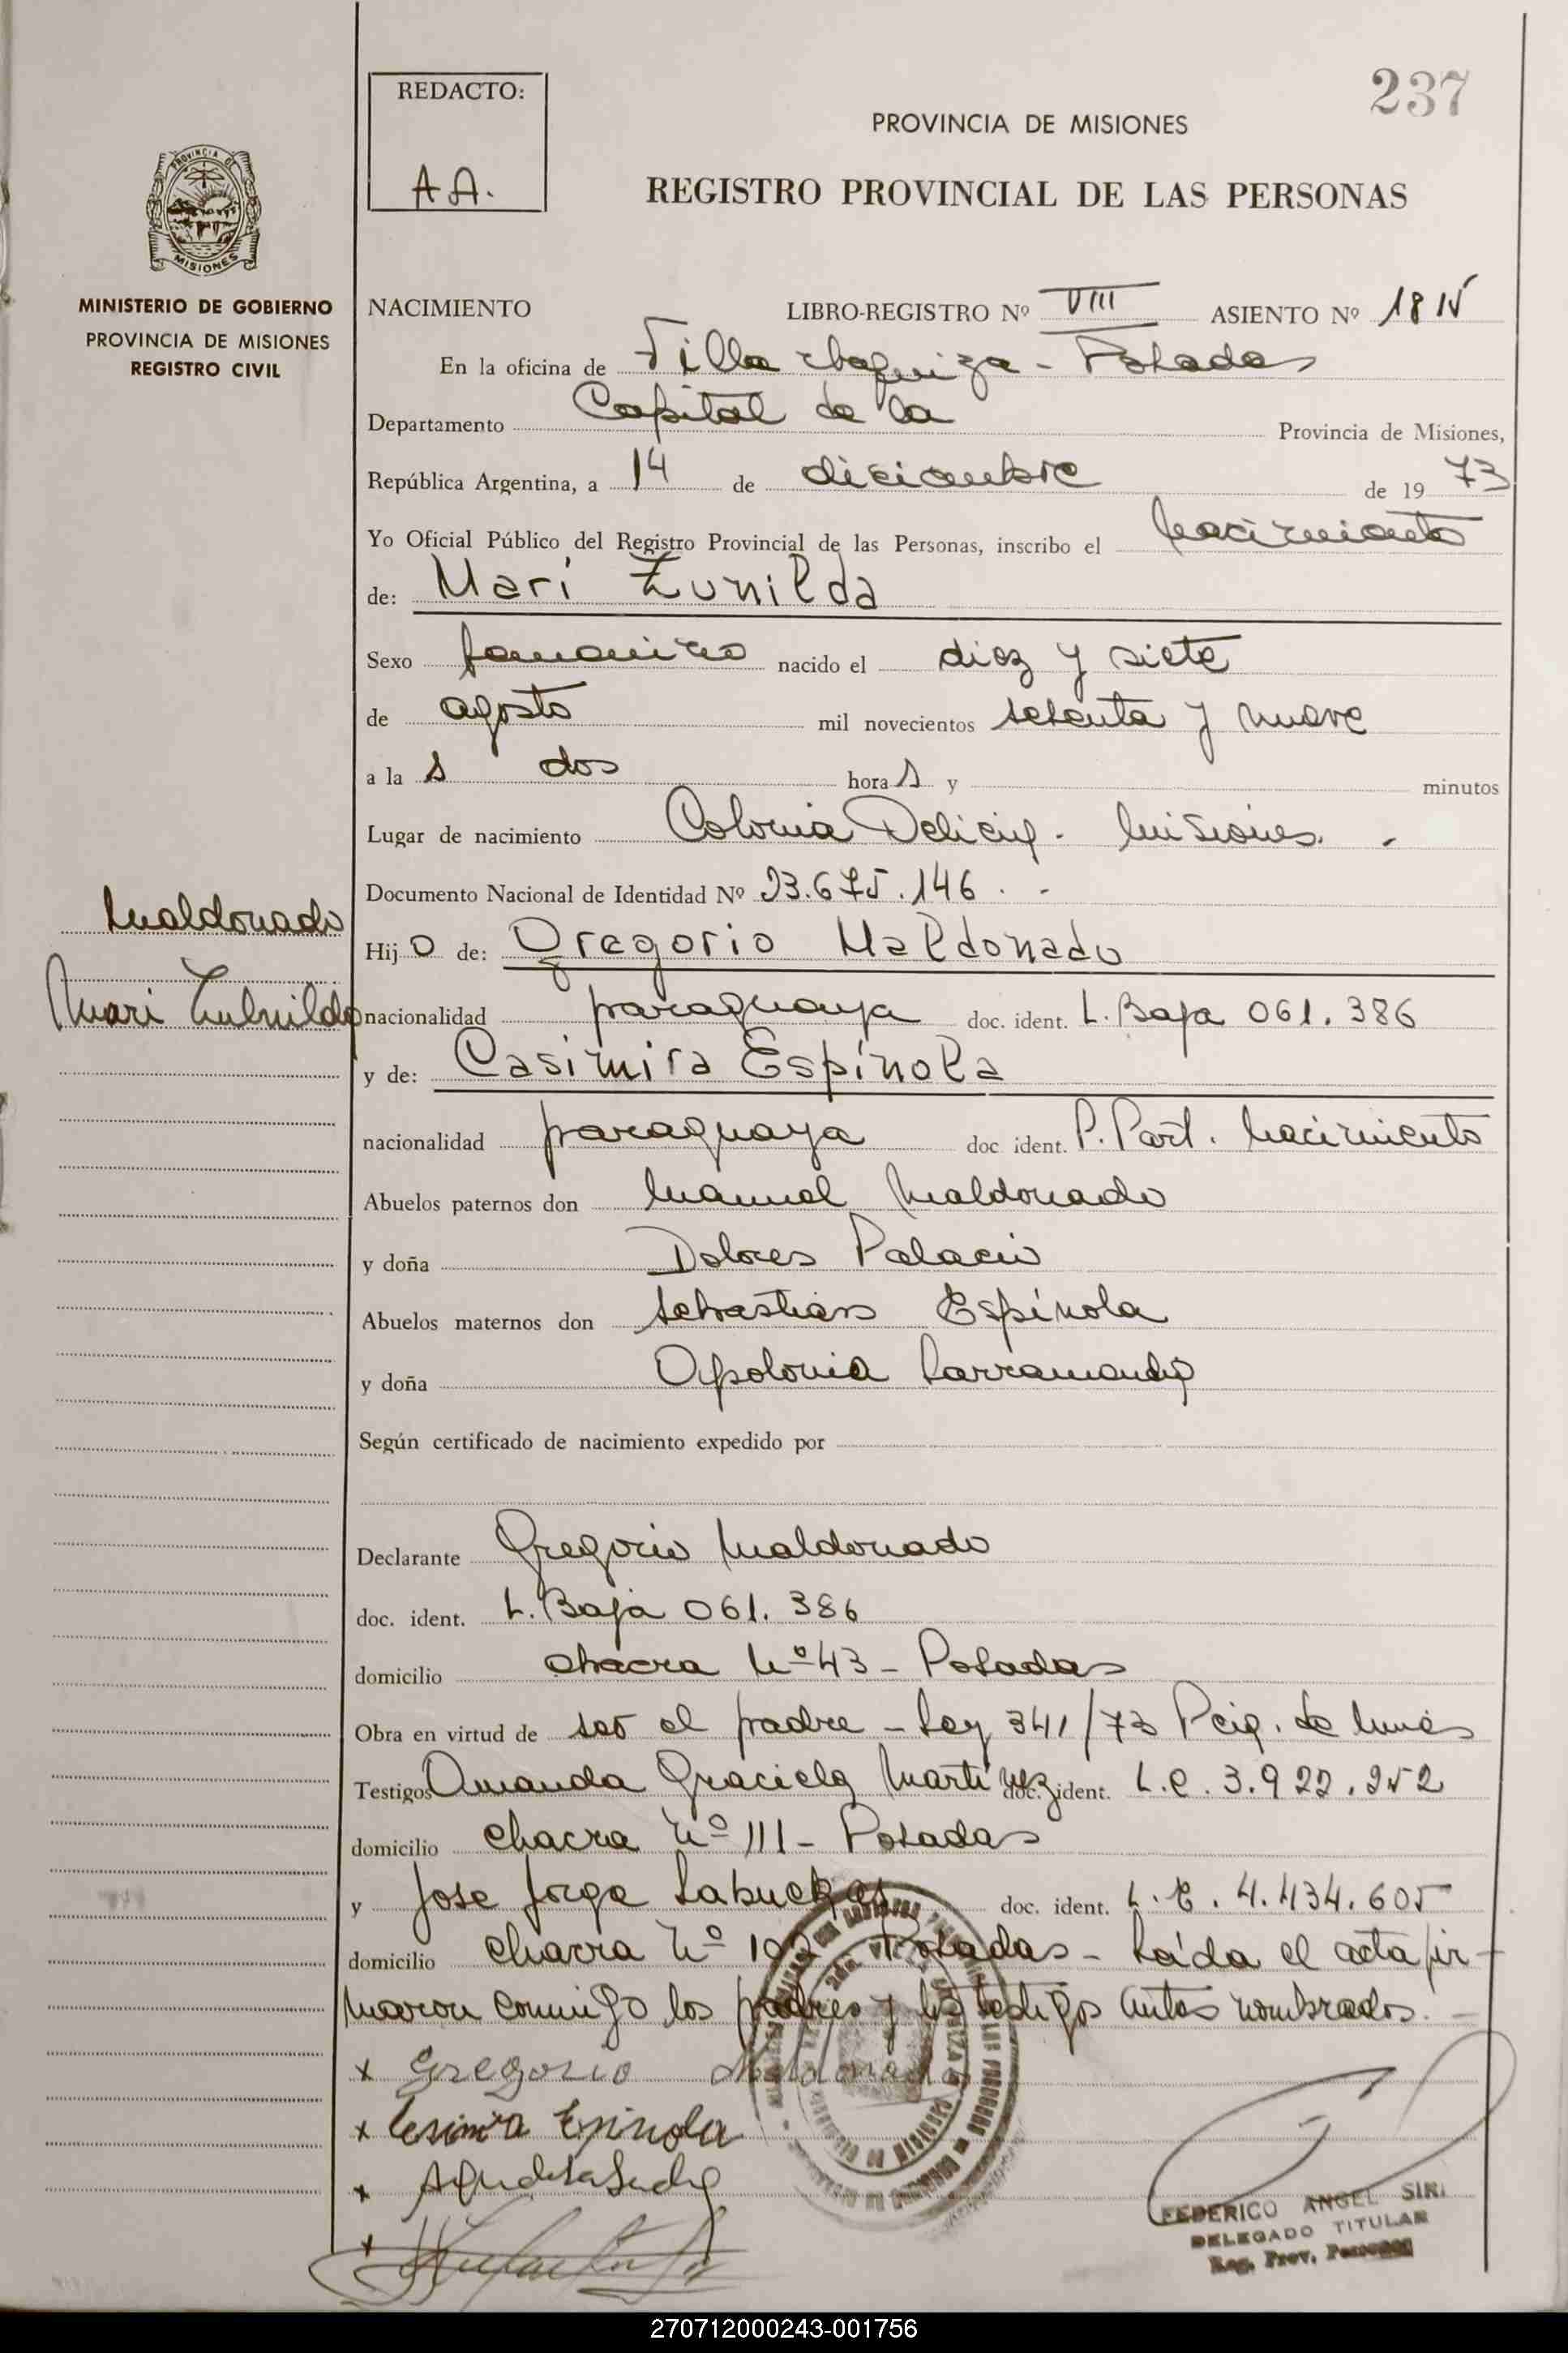 237
REDACTO:
AA.
PROVINCIA DE MISIONES
REGISTRO PROVINCIAL DE LAS PERSONAS
PROVINCIA DE
MISIONES
MINISTERIO DE GOBIERNO
PROVINCIA DE MISIONES
REGISTRO CIVIL
NACIMIENTO LIBRO-REGISTRO Nº VIII ASIENTO Nº 1815
En la oficina de Villa - Posadas
Departamento Capital de la Provincia de Misiones,
República Argentina, a 14 de diciembre de 19 73
Yo Oficial Público del Registro Provincial de las Personas, inscribo el nacimiento
de: Mari Zunilda
Sexo femenino nacido el diez y siete
de agosto mil novecientos setenta y nueve
a la s dos hora s y minutos
Lugar de nacimiento Colonia Delicia - Misiones. -
Documento Nacional de Identidad Nº 23.675.146. -
Maldonado
Mari Zulnilda
Hij o de: Gregorio Maldonado
nacionalidad paraguaya doc. ident. L. Baja 061.386
y de: Casimira Espínola
nacionalidad paraguaya doc ident. P. Part. Nacimiento
Abuelos paternos don Manuel Maldonado
y doña Dolores Palacio
Abuelos maternos don Sebastian Espínola
y doña Apolonia
Según certificado de nacimiento expedido por
Declarante Gregorio Maldonado
doc. ident. L. Baja 061.386
domicilio chacra Nº 43 - Posadas
Obra en virtud de ser el padre - Ley 341/73 de
Testigos Amanda Graciela Martínez doc. ident. L.C. 3.922.252
domicilio chacra Nº 111 - Posadas
y Jose Jorge doc. ident. L.E. 4.434.605
domicilio chacra Nº 192 - Posadas - Leída el acta fir-
maron conmigo los padres y los testigos antes nombrados. -
x Gregorio Maldonado
x Espinola
x
x
FEDERICO ANGEL SIRI
DELEGADO TITULAR
Reg. Prov. Personas
270712000243-001756